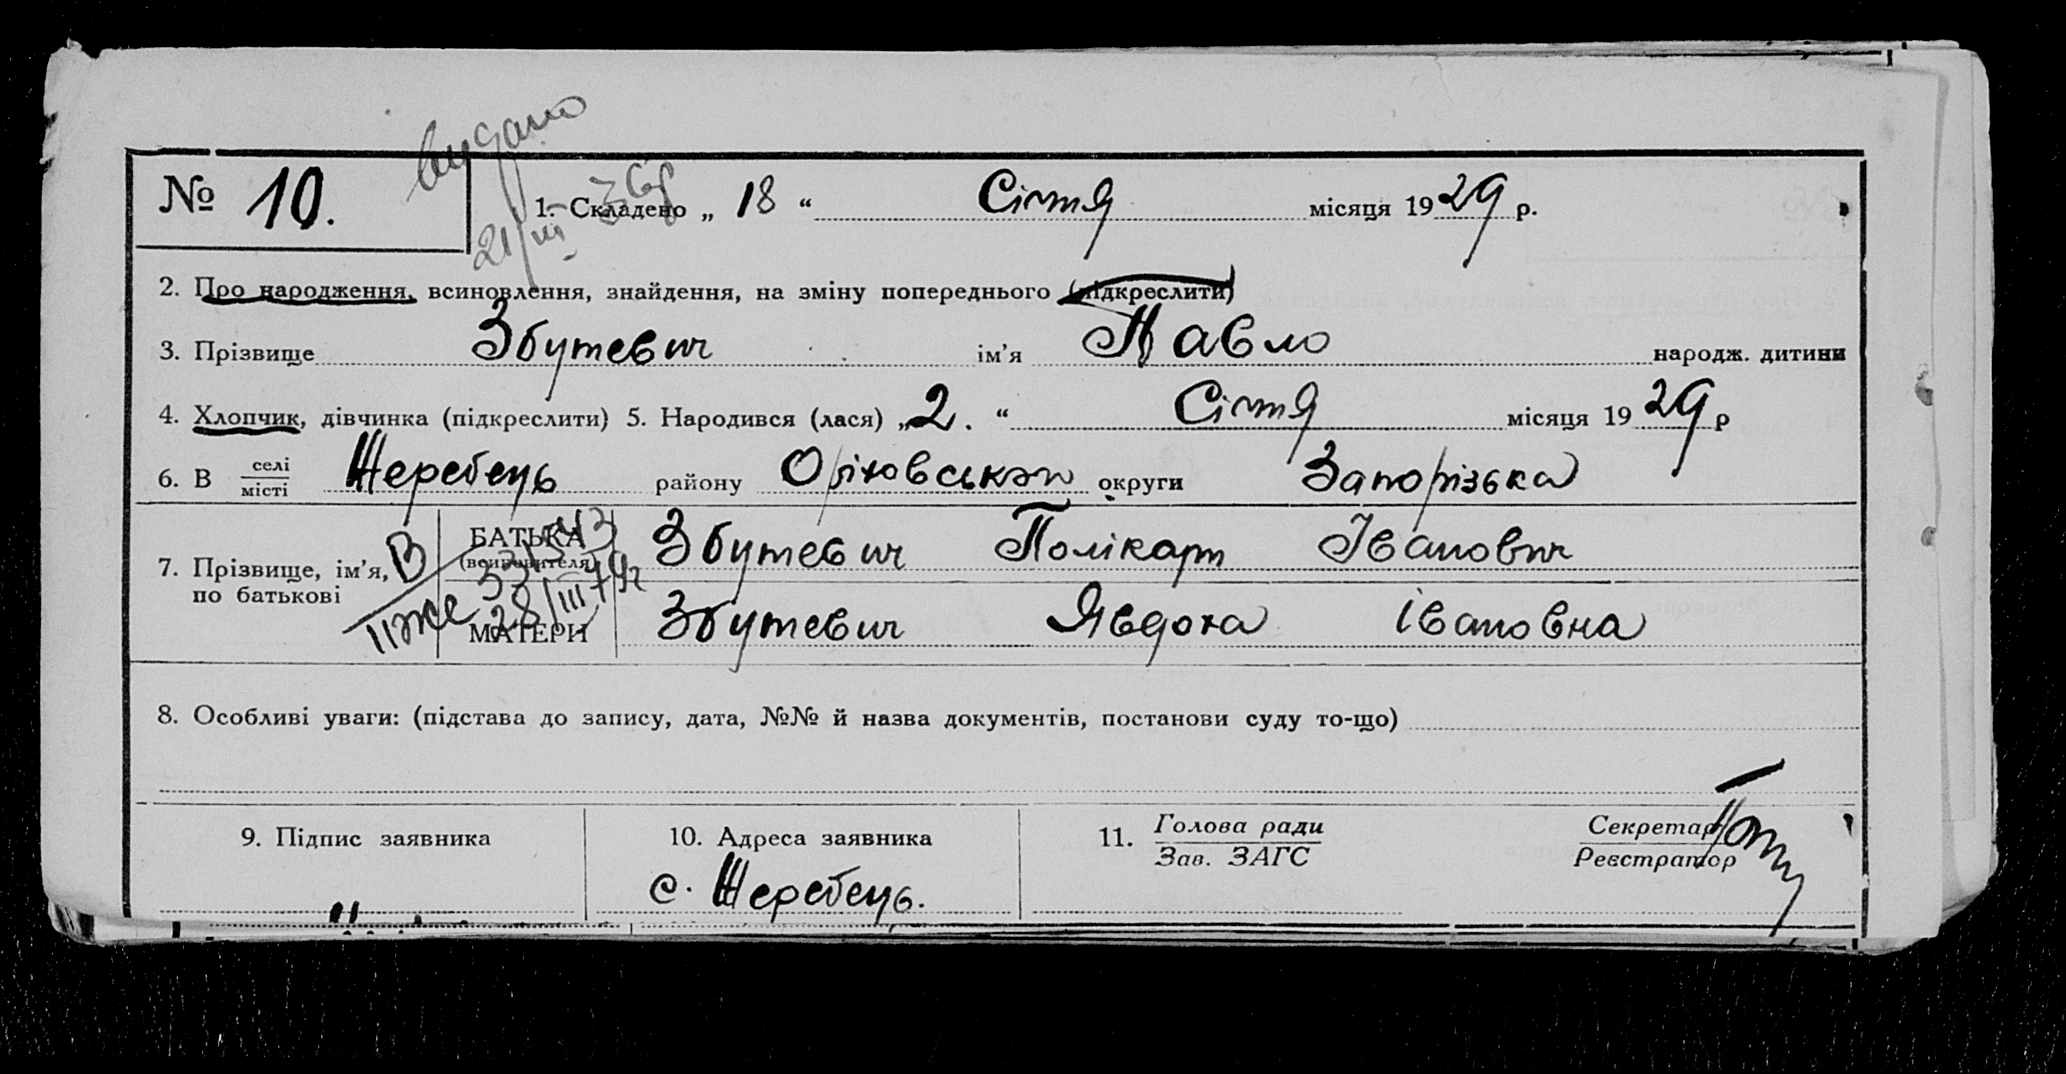 видано
№ 10.
1. Складено „ 18 “ Січня місяця 1929 р.
21/III
2. Про народження, всиновлення, знайдення, на зміну попереднього (підкреслити)
3. Прізвище Збутевич ім’я Павло народж. дитини
4. Хлопчик, дівчинка (підкреслити) 5. Народився (лася) „ 2. “ Січня місяця 1929 р
6. В селі/місті Жеребець району Оріховський округи Запорізька
7. Прізвище, ім’я, по батькові
БАТЬКА (всиновителя) Збутевич Полікарп Іванович
МАТЕРИ Збутевич Явдоха Івановна
28/III
8. Особливі уваги: (підстава до запису, дата, №№ й назва документів, постанови суду то-що)
9. Підпис заявника
10. Адреса заявника
с. Жеребець.
11. Голова ради
Зав. ЗАГС
Секретар
Реєстратор